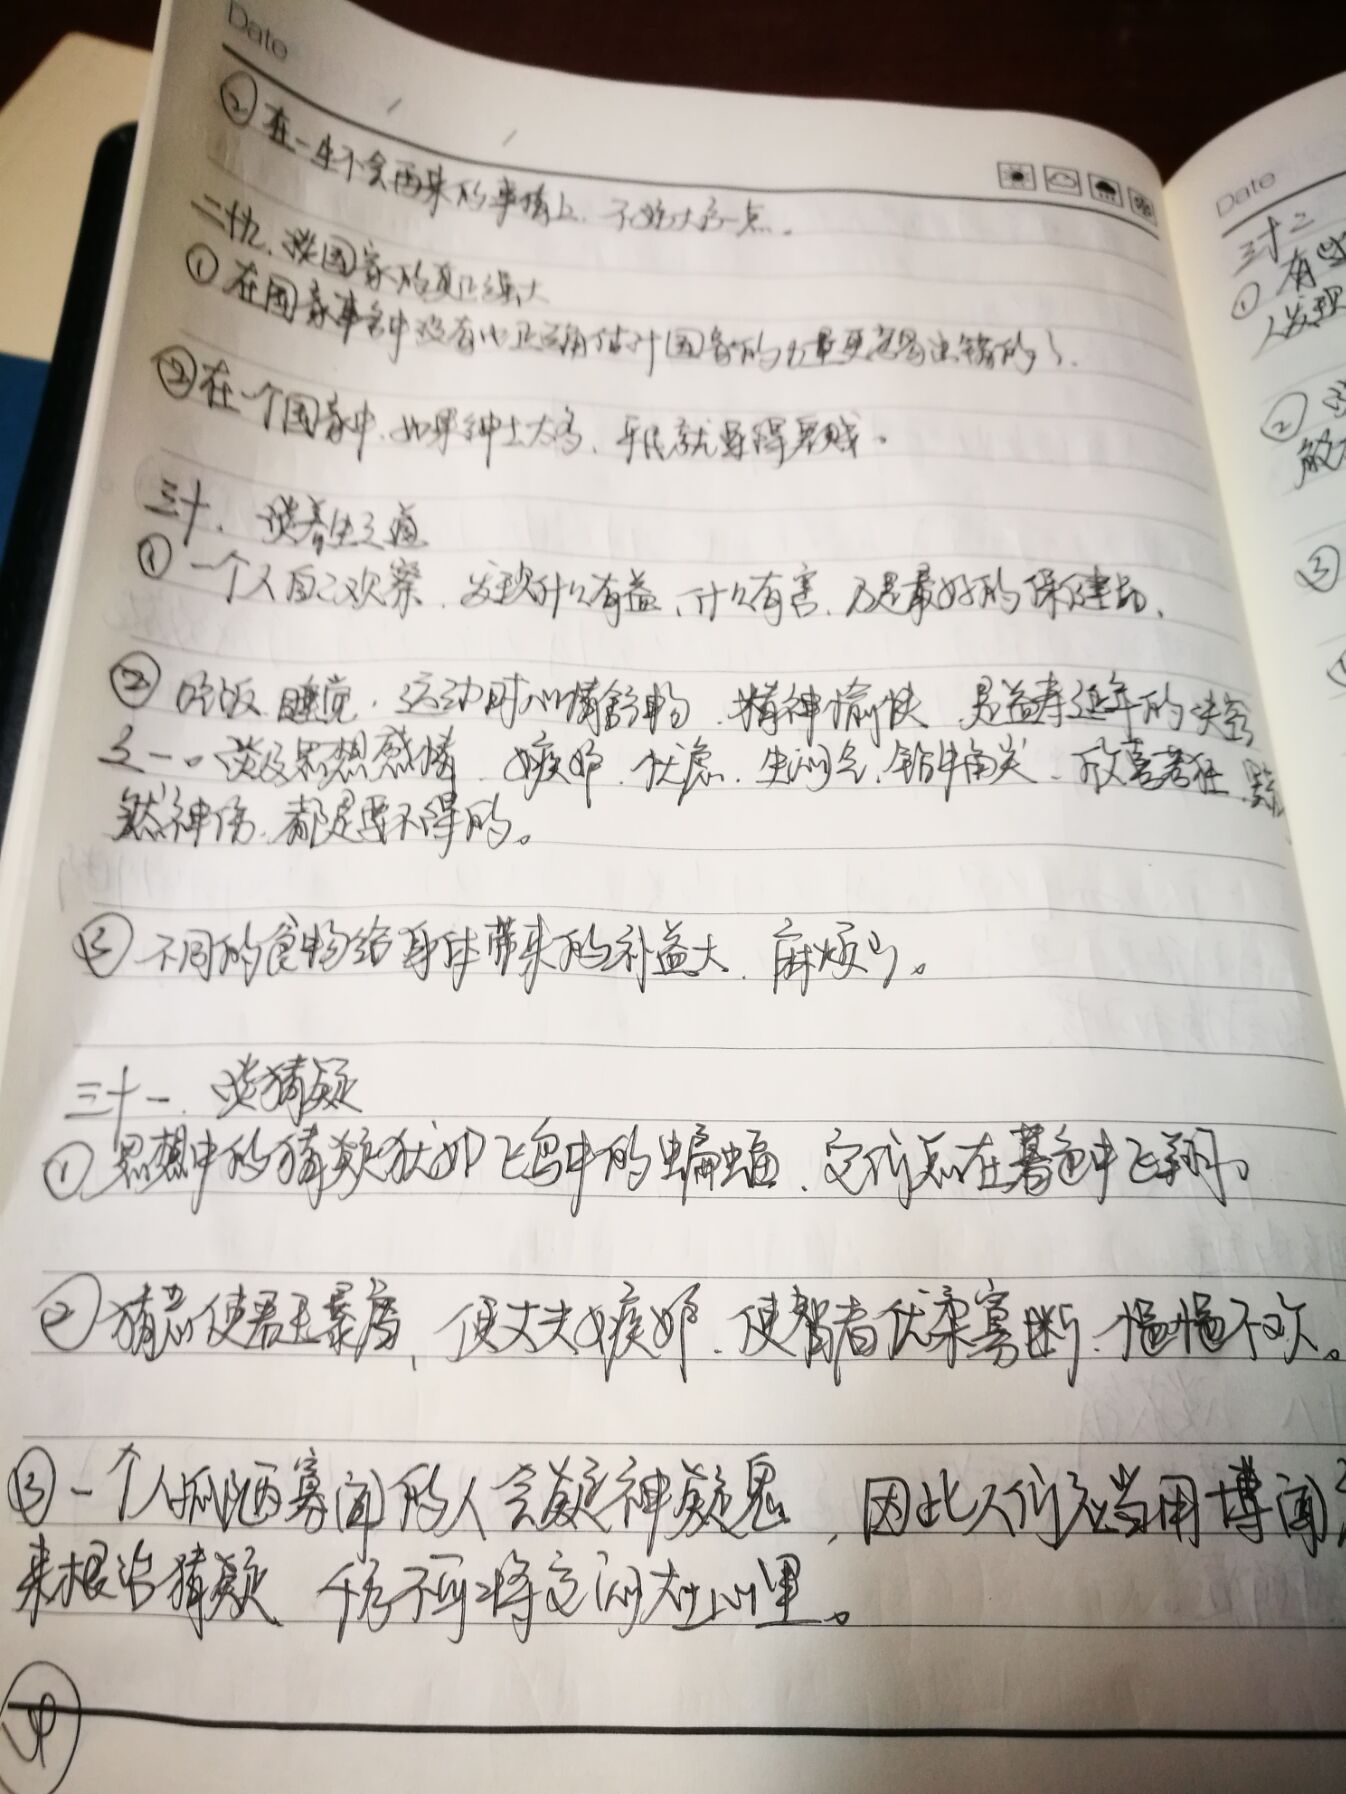 Date
② 在一生不会再来的事情上，不妨大方一点。
二十九、谈国家的真正强大
① 在国家事务中没有比正确估计国家的力量更容易出错的了。
② 在一个国家中，如果绅士太多，平民就显得卑贱。
三十、谈养生之道
① 一个人自己观察，发现什么有益，什么有害，乃是最好的保健品。
② 吃饭、睡觉、运动时心情舒畅、精神愉快，是益寿延年的诀窍
之一。谈及思想感情，嫉妒、忧虑、生闷气、钻牛角尖、欣喜若狂、黯
然神伤，都是要不得的。
③ 不同的食物给身体带来的补益大，麻烦少。
三十一、谈猜疑
① 思想中的猜疑犹如飞鸟中的蝙蝠，它们总在暮色中飞翔。
② 猜忌使君王暴虐，使丈夫嫉妒，使智者优柔寡断、悒悒不欢。
③ 一个人孤陋寡闻的人会疑神疑鬼，因此人们应当用博闻
来根治猜疑，千万不可将它闷在心里。
Date
三十二
① 有些
人发现
②
敏
③